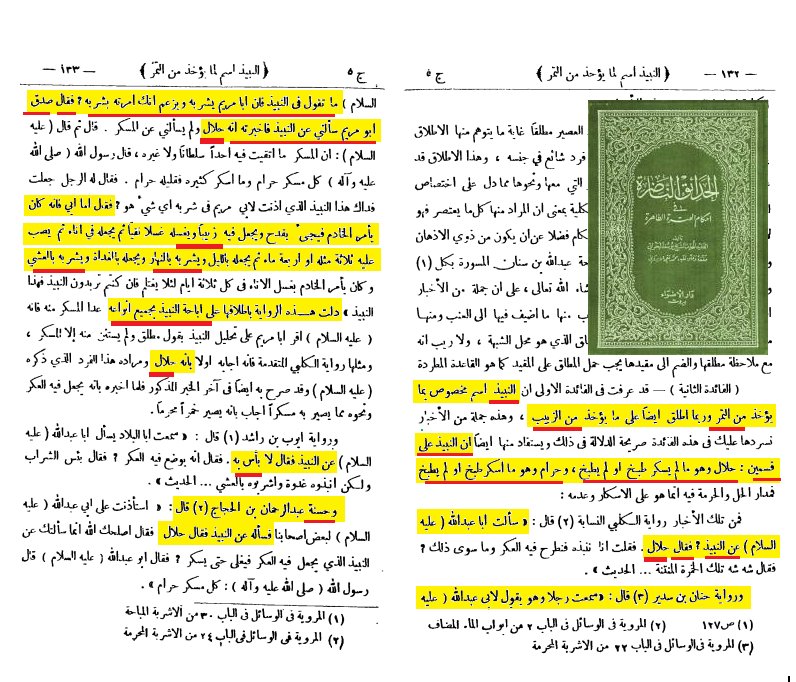 — ١٣٢ — ﴿ النبيذ اسم لما يؤخذ من التمر ﴾ ج ٥
العصير مطلقاً غاية ما يتوهم منها الاطلاق
فرد شائع في جنسه ، وهذا الاطلاق قد
التي معها ونحوها مما دل على اختصاص
كلية بمعنى ان المراد منها كل ما يعتصر فهو
كام فضلا عن ان يكون من ذوي الاذهان
حة عبدالله بن سنان المسورة بكل (١)
شاء الله تعالى ، على ان جملة من الأخبار
ب منها ما اضيف فيها الى العنب ومنها
لاق الذي هو محل الشبهة ، ولا ريب انه
مع ملاحظة مطلقها والضم الى مقيدها يجب حمل المطلق على المقيد كما هو القاعدة المطردة
( الفائدة الثانية ) — قد عرفت في الفائدة الاولى ان النبيذ اسم مخصوص بما
يؤخذ من التمر وربما اطلق ايضاً على ما يؤخذ من الزبيب ، وهذه جملة من الأخبار
نسردها عليك في هذه الفائدة صريحة الدلالة في ذلك ويستفاد منها ايضاً ان النبيذ على
قسمين : حلال وهو ما لم يسكر طبخ او لم يطبخ ، وحرام وهو ما اسكر طبخ او لم يطبخ
فمدار الحل والحرمة فيه انما هو على الاسكار وعدمه :
فمن تلك الأخبار رواية الكلبي النسابة (٢) قال : « سألت ابا عبدالله ( عليه
السلام ) عن النبيذ ؟ فقال حلال . فقلت انا ننبذه فنطرح فيه العكر وما سوى ذلك ؟
فقال شه شه تلك الخمرة المنتنة ... الحديث » .
ورواية حنان بن سدير (٣) قال : « سمعت رجلا وهو يقول لابي عبدالله ( عليه
(١) ص ١٢٧ (٢) المروية في الوسائل في الباب ٢ من ابواب الماء المضاف
(٣) المروية في الوسائل في الباب ٢٢ من الاشربة المحرمة
الحدائق الناضرة
في
احكام العترة الطاهرة
ج ٥ ﴿ النبيذ اسم لما يؤخذ من التمر ﴾ — ١٣٣ —
السلام ) ما تقول في النبيذ فان ابا مريم يشربه ويزعم انك امرته بشربه ؟ فقال صدق
ابو مريم سألني عن النبيذ فاخبرته انه حلال ولم يسألني عن المسكر . قال ثم قال ( عليه
السلام ) : ان المسكر ما اتقيت فيه احداً سلطاناً ولا غيره ، قال رسول الله ( صلى الله
عليه وآله ) كل مسكر حرام وما اسكر كثيره فقليله حرام . فقال له الرجل جعلت
فداك هذا النبيذ الذي اذنت لابي مريم في شربه اي شيء هو ؟ فقال اما ابي فانه كان
يأمر الخادم فيجيء بقدح ويجعل فيه زبيباً ويغسله غسلا نقياً ثم يجعله في اناء ثم يصب
عليه ثلاثة مثله او اربعة ماء ثم يجعله بالليل ويشربه بالنهار ويجعله بالغداة ويشربه بالعشي
وكان يأمر الخادم بغسل الاناء في كل ثلاثة ايام لئلا يغتلم فان كنتم تريدون النبيذ فهذا
النبيذ » دلت هذه الرواية باطلاقها على اباحة النبيذ بجميع انواعه عدا المسكر منه فانه
( عليه السلام ) اقر ابا مريم على تحليل النبيذ بقول مطلق ولم يستثن منه إلا المسكر ،
ومثلها رواية الكلبي المتقدمة فانه اجابه اولا بأنه حلال ومراده هذا الفرد الذي ذكره
( عليه السلام ) وقد صرح به ايضاً في آخر الخبر المذكور فلما اخبره بانه يجعل فيه العكر
ونحوه مما يصير به مسكراً اجاب بأنه يصير خمراً محرماً .
ورواية ايوب بن راشد (١) قال : « سمعت ابا البلاد يسأل ابا عبدالله ( عليه
السلام ) عن النبيذ فقال لا بأس به . فقال انه يوضع فيه العكر ؟ فقال بئس الشراب
ولكن انبذوه غدوة واشربوه بالعشي ... الحديث » .
وحسنة عبدالرحمان بن الحجاج (٢) قال : « استأذنت على ابي عبدالله ( عليه
السلام ) لبعض اصحابنا فسأله عن النبيذ فقال حلال فقال اصلحك الله انما سألتك عن
النبيذ الذي يجعل فيه العكر فيغلى حتى يسكر ؟ فقال ابو عبدالله ( عليه السلام ) قال
رسول الله ( صلى الله عليه وآله ) : كل مسكر حرام » .
(١) المروية في الوسائل في الباب ٣٠ من الاشربة المباحة
(٢) المروية في الوسائل في الباب ٢٤ من الاشربة المحرمة